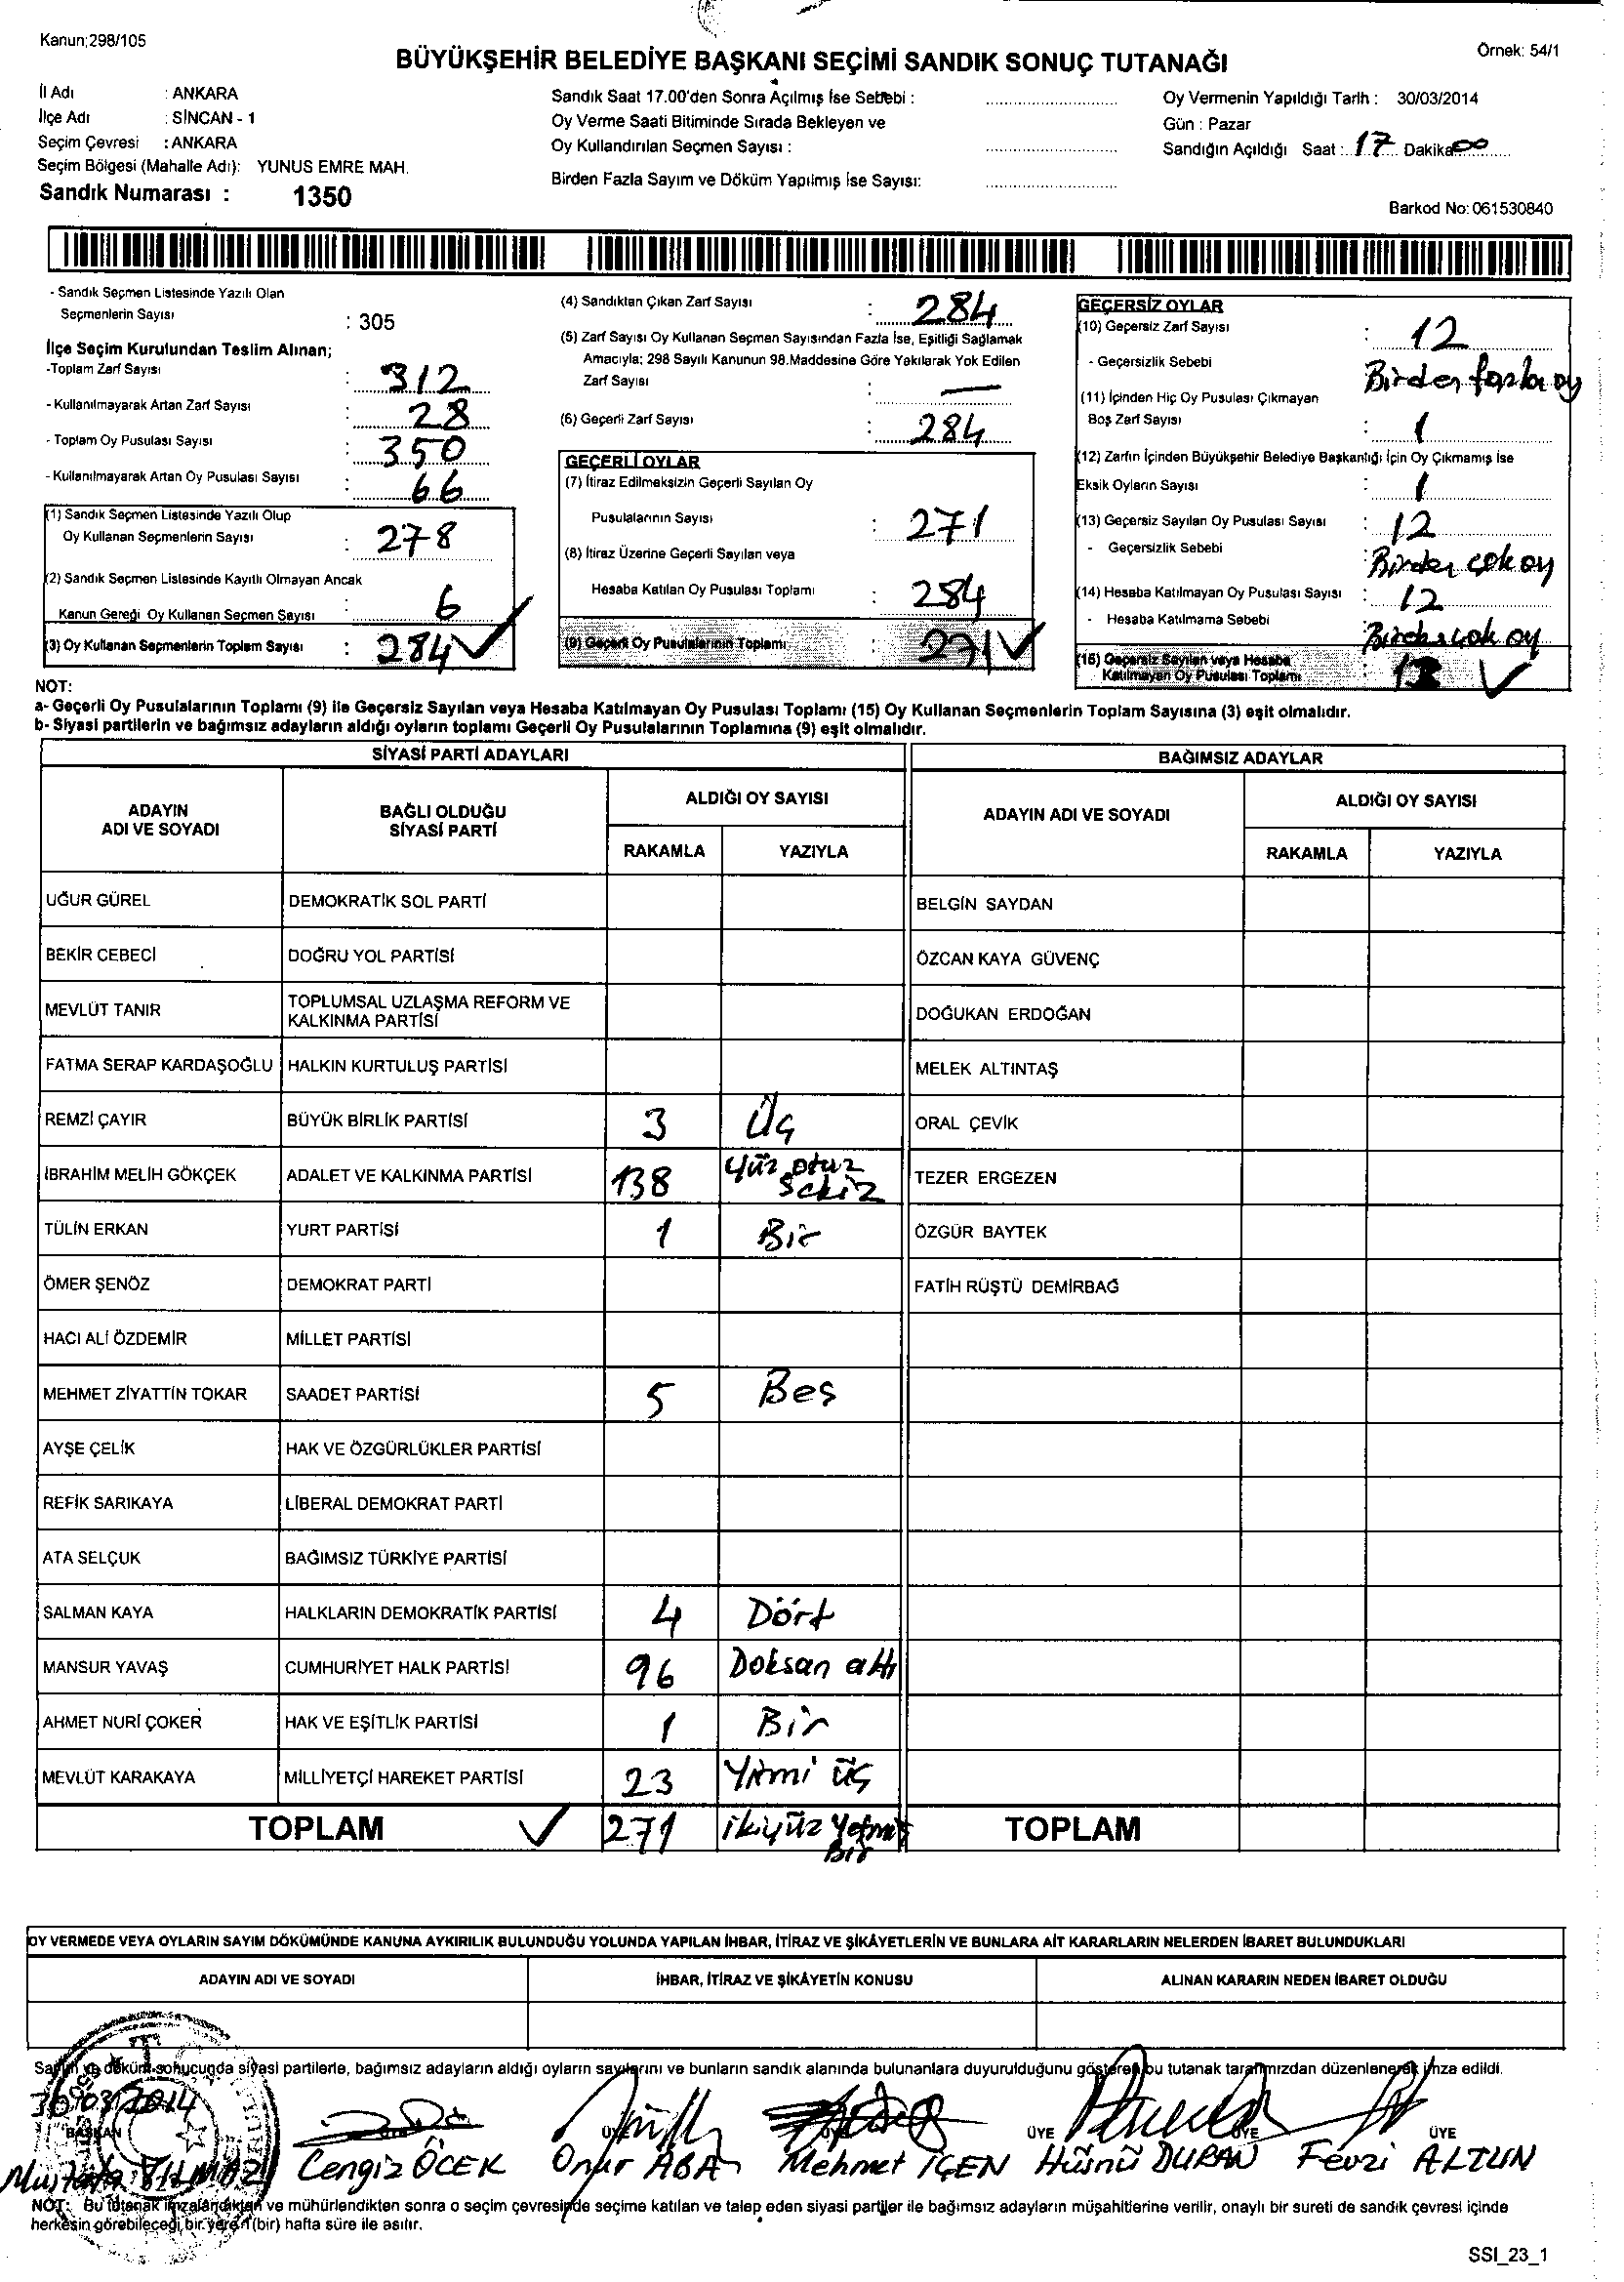 Kanun;298/105
BÜYÜKŞEHİR BELEDİYE BAŞKANI SEÇİMİ SANDIK SONUÇ TUTANAĞI
Örnek: 54/1
İl Adı : ANKARA
İlçe Adı : SİNCAN - 1
Seçim Çevresi : ANKARA
Seçim Bölgesi (Mahalle Adı): YUNUS EMRE MAH.
Sandık Numarası : 1350
Sandık Saat 17.00'den Sonra Açılmış İse Sebebi :
Oy Verme Saati Bitiminde Sırada Bekleyen ve
Oy Kullandırılan Seçmen Sayısı :
Birden Fazla Sayım ve Döküm Yapılmış İse Sayısı:
Oy Vermenin Yapıldığı Tarih : 30/03/2014
Gün : Pazar
Sandığın Açıldığı Saat : 17 Dakika 00
Barkod No: 061530840
- Sandık Seçmen Listesinde Yazılı Olan
Seçmenlerin Sayısı : 305
İlçe Seçim Kurulundan Teslim Alınan;
-Toplam Zarf Sayısı : 312
- Kullanılmayarak Artan Zarf Sayısı : 28
- Toplam Oy Pusulası Sayısı : 350
- Kullanılmayarak Artan Oy Pusulası Sayısı : 66
(1) Sandık Seçmen Listesinde Yazılı Olup
Oy Kullanan Seçmenlerin Sayısı : 278
(2) Sandık Seçmen Listesinde Kayıtlı Olmayan Ancak
Kanun Gereği Oy Kullanan Seçmen Sayısı : 6
(3) Oy Kullanan Seçmenlerin Toplam Sayısı : 284 ✓
(4) Sandıktan Çıkan Zarf Sayısı : 284
(5) Zarf Sayısı Oy Kullanan Seçmen Sayısından Fazla İse, Eşitliği Sağlamak
Amacıyla; 298 Sayılı Kanunun 98.Maddesine Göre Yakılarak Yok Edilen
Zarf Sayısı : —
(6) Geçerli Zarf Sayısı : 284
GEÇERLİ OYLAR
(7) İtiraz Edilmeksizin Geçerli Sayılan Oy
Pusulalarının Sayısı : 271
(8) İtiraz Üzerine Geçerli Sayılan veya
Hesaba Katılan Oy Pusulası Toplamı : 284
(9) Geçerli Oy Pusulalarının Toplamı : 271 ✓
GEÇERSİZ OYLAR
(10) Geçersiz Zarf Sayısı : 12
- Geçersizlik Sebebi Birden fazla oy
(11) İçinden Hiç Oy Pusulası Çıkmayan
Boş Zarf Sayısı : 1
(12) Zarfın İçinden Büyükşehir Belediye Başkanlığı İçin Oy Çıkmamış İse
Eksik Oyların Sayısı : 1
(13) Geçersiz Sayılan Oy Pusulası Sayısı : 12
- Geçersizlik Sebebi : Birden çok oy
(14) Hesaba Katılmayan Oy Pusulası Sayısı : 12
- Hesaba Katılmama Sebebi Birden çok oy
(15) Geçersiz Sayılan veya Hesaba
Katılmayan Oy Pusulası Toplamı : ✓
NOT:
a- Geçerli Oy Pusulalarının Toplamı (9) ile Geçersiz Sayılan veya Hesaba Katılmayan Oy Pusulası Toplamı (15) Oy Kullanan Seçmenlerin Toplam Sayısına (3) eşit olmalıdır.
b- Siyasi partilerin ve bağımsız adayların aldığı oyların toplamı Geçerli Oy Pusulalarının Toplamına (9) eşit olmalıdır.
SİYASİ PARTİ ADAYLARI BAĞIMSIZ ADAYLAR
ADAYIN ADI VE SOYADI BAĞLI OLDUĞU SİYASİ PARTİ ALDIĞI OY SAYISI ADAYIN ADI VE SOYADI ALDIĞI OY SAYISI
RAKAMLA YAZIYLA RAKAMLA YAZIYLA
UĞUR GÜREL DEMOKRATİK SOL PARTİ BELGİN SAYDAN
BEKİR CEBECİ DOĞRU YOL PARTİSİ ÖZCAN KAYA GÜVENÇ
MEVLÜT TANIR TOPLUMSAL UZLAŞMA REFORM VE KALKINMA PARTİSİ DOĞUKAN ERDOĞAN
FATMA SERAP KARDAŞOĞLU HALKIN KURTULUŞ PARTİSİ MELEK ALTINTAŞ
REMZİ ÇAYIR BÜYÜK BİRLİK PARTİSİ 3 Üç ORAL ÇEVİK
İBRAHİM MELİH GÖKÇEK ADALET VE KALKINMA PARTİSİ 138 Yüz otuz Sekiz TEZER ERGEZEN
TÜLİN ERKAN YURT PARTİSİ 1 Bir ÖZGÜR BAYTEK
ÖMER ŞENÖZ DEMOKRAT PARTİ FATİH RÜŞTÜ DEMİRBAĞ
HACI ALİ ÖZDEMİR MİLLET PARTİSİ
MEHMET ZİYATTİN TOKAR SAADET PARTİSİ 5 Beş
AYŞE ÇELİK HAK VE ÖZGÜRLÜKLER PARTİSİ
REFİK SARIKAYA LİBERAL DEMOKRAT PARTİ
ATA SELÇUK BAĞIMSIZ TÜRKİYE PARTİSİ
SALMAN KAYA HALKLARIN DEMOKRATİK PARTİSİ 4 Dört
MANSUR YAVAŞ CUMHURİYET HALK PARTİSİ 96 Doksan altı
AHMET NURİ ÇOKER HAK VE EŞİTLİK PARTİSİ 1 Bir
MEVLÜT KARAKAYA MİLLİYETÇİ HAREKET PARTİSİ 23 Yirmi üç
TOPLAM ✓ 271 ikiyüz Yetmiş Bir TOPLAM
OY VERMEDE VEYA OYLARIN SAYIM DÖKÜMÜNDE KANUNA AYKIRILIK BULUNDUĞU YOLUNDA YAPILAN İHBAR, İTİRAZ VE ŞİKÂYETLERİN VE BUNLARA AİT KARARLARIN NELERDEN İBARET BULUNDUKLARI
ADAYIN ADI VE SOYADI İHBAR, İTİRAZ VE ŞİKÂYETİN KONUSU ALINAN KARARIN NEDEN İBARET OLDUĞU
Sayım ve döküm sonucunda siyasi partilerle, bağımsız adayların aldığı oyların sayılarını ve bunların sandık alanında bulunanlara duyurulduğunu gösteren bu tutanak tarafımızdan düzenlenerek imza edildi.
30/03/2014
BAŞKAN ÜYE ÜYE ÜYE ÜYE ÜYE
Mustafa YILMAZ Cengiz ÖCEK Onur ABA Mehmet İÇEN Hüsnü DURAN Fevzi ALTUN
NOT: Bu tutanak imzalandıktan ve mühürlendikten sonra o seçim çevresinde seçime katılan ve talep eden siyasi partiler ile bağımsız adayların müşahitlerine verilir, onaylı bir sureti de sandık çevresi içinde
herkesin görebileceği bir yere 1 (bir) hafta süre ile asılır.
SSI_23_1